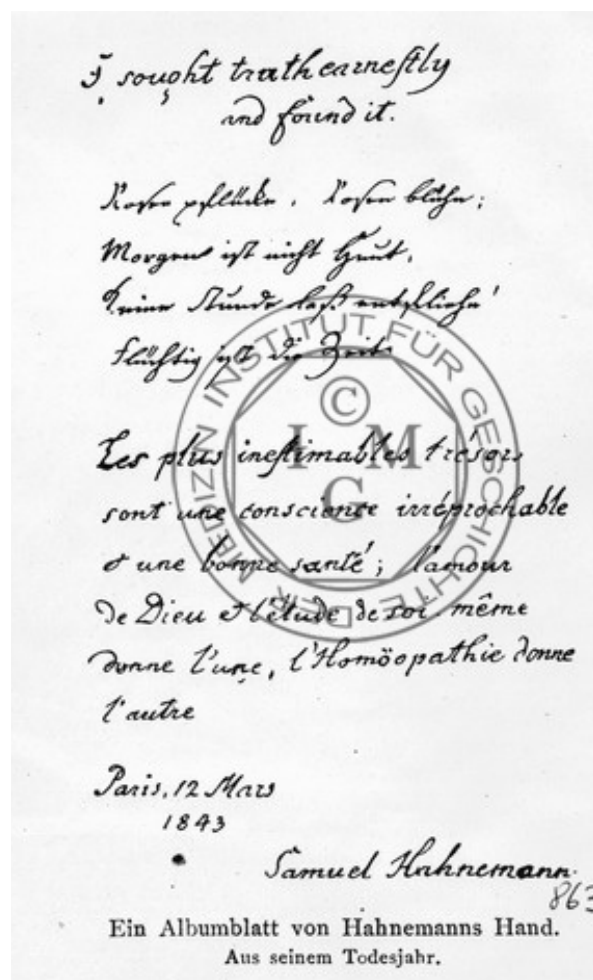 I sought truth earnestly
and found it.
Rosen pflücke, Rosen blühn;
Morgen ist nicht heut,
Keine Stunde laß entfliehn!
Flüchtig ist die Zeit.
Les plus inestimables trésors
sont une conscience irréprochable
& une bonne santé; l'amour
de Dieu & l'étude de soi même
donne l'une, l'Homöopathie donne
l'autre
Paris, 12 Mars
1843
Samuel Hahnemann.
863
Ein Albumblatt von Hahnemanns Hand.
Aus seinem Todesjahr.
INSTITUT FÜR GESCHICHTE DER MEDIZIN
©
I M
G